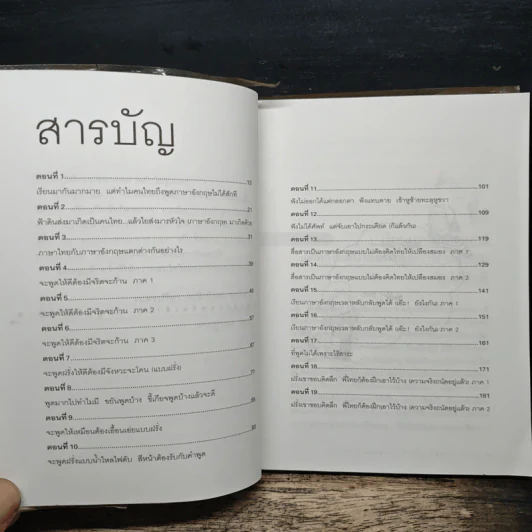 สารบัญ
ตอนที่ 1
เรียนมากันมากมาย แต่ทำไมคนไทยถึงพูดภาษาอังกฤษไม่ได้สักที
ตอนที่ 2 21
ฟ้าดินส่งมาเกิดเป็นคนไทย...แล้วใยส่งมารหัวใจ (ภาษาอังกฤษ) มาเกิดด้วย
ตอนที่ 3 31
ภาษาไทยกับภาษาอังกฤษแตกต่างกันอย่างไร
ตอนที่ 4
จะพูดให้ดีต้องมีจริตจะก้าน ภาค 1
ตอนที่ 5
จะพูดให้ดีต้องมีจริตจะก้าน ภาค 2
ตอนที่ 6
จะพูดให้ดีต้องมีจริตจะก้าน ภาค 3
ตอนที่ 7
จะพูดฝรั่งให้ดีต้องมีจังหวะจะโคน (แบบฝรั่ง)
ตอนที่ 8
พูดมากไปทำไมมี ขยันพูดบ้าง ขี้เกียจพูดบ้างแล้วจะดี
ตอนที่ 9
จะพูดให้เหมือนต้องเอื้อนเอ่ยแบบฝรั่ง
ตอนที่ 10
จะพูดฝรั่งแบบน้ำไหลไฟดับ สีหน้าต้องรับกับคำพูด
ตอนที่ 11 101
ฟังไม่ออกได้แต่กลอกตา ฟังแทบตาย เข้าหูซ้ายทะลุหูขวา
ตอนที่ 12 109
ฟังไม่ได้ศัพท์ แต่จับเอาไปกระเดียด (ก็แล้วกัน)
ตอนที่ 13 119
สื่อสารเป็นภาษาอังกฤษแบบไม่ต้องคิดไทยให้เปลืองสมอง ภาค 1
ตอนที่ 14 129
สื่อสารเป็นภาษาอังกฤษแบบไม่ต้องคิดไทยให้เปลืองสมอง ภาค 2
ตอนที่ 15 141
เรียนภาษาอังกฤษเวลาหลับกลับพูดได้ (เด๊ะ! ยังไงกัน) ภาค 1
ตอนที่ 16 151
เรียนภาษาอังกฤษเวลาหลับกลับพูดได้ (เด๊ะ! ยังไงกัน) ภาค 2
ตอนที่ 17 161
ที่พูดไม่ได้เพราะไร้สาระ
ตอนที่ 18 171
ฝรั่งเขาชอบคิดลึก พี่ไทยก็ต้องฝึกเอาไว้บ้าง (ความจริงถนัดอยู่แล้ว) ภาค 1
ตอนที่ 19 181
ฝรั่งเขาชอบคิดลึก พี่ไทยก็ต้องฝึกเอาไว้บ้าง (ความจริงถนัดอยู่แล้ว) ภาค 2